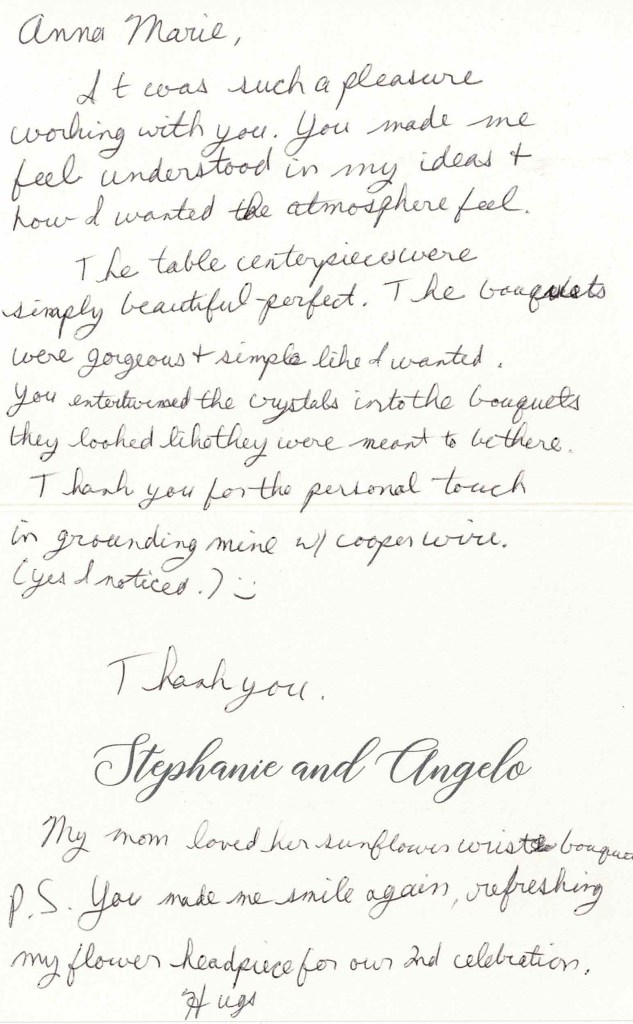 Anna Marie,
It was such a pleasure
working with you. You made me
feel understood in my ideas +
how I wanted the atmosphere feel.
The table centerpieces were
simply beautiful-perfect. The bouquets
were gorgeous + simple like I wanted.
You entertwined the crystals into the bouquets
they looked like they were meant to be there.
Thank you for the personal touch
in grounding mine w/ cooper wire.
(yes I noticed.) :)
Thank you.
Stephanie and Angelo
My mom loved her sunflower wrist bouquet
P.S. You made me smile again, refreshing
my flower headpiece for our 2nd celebration.
Hugs